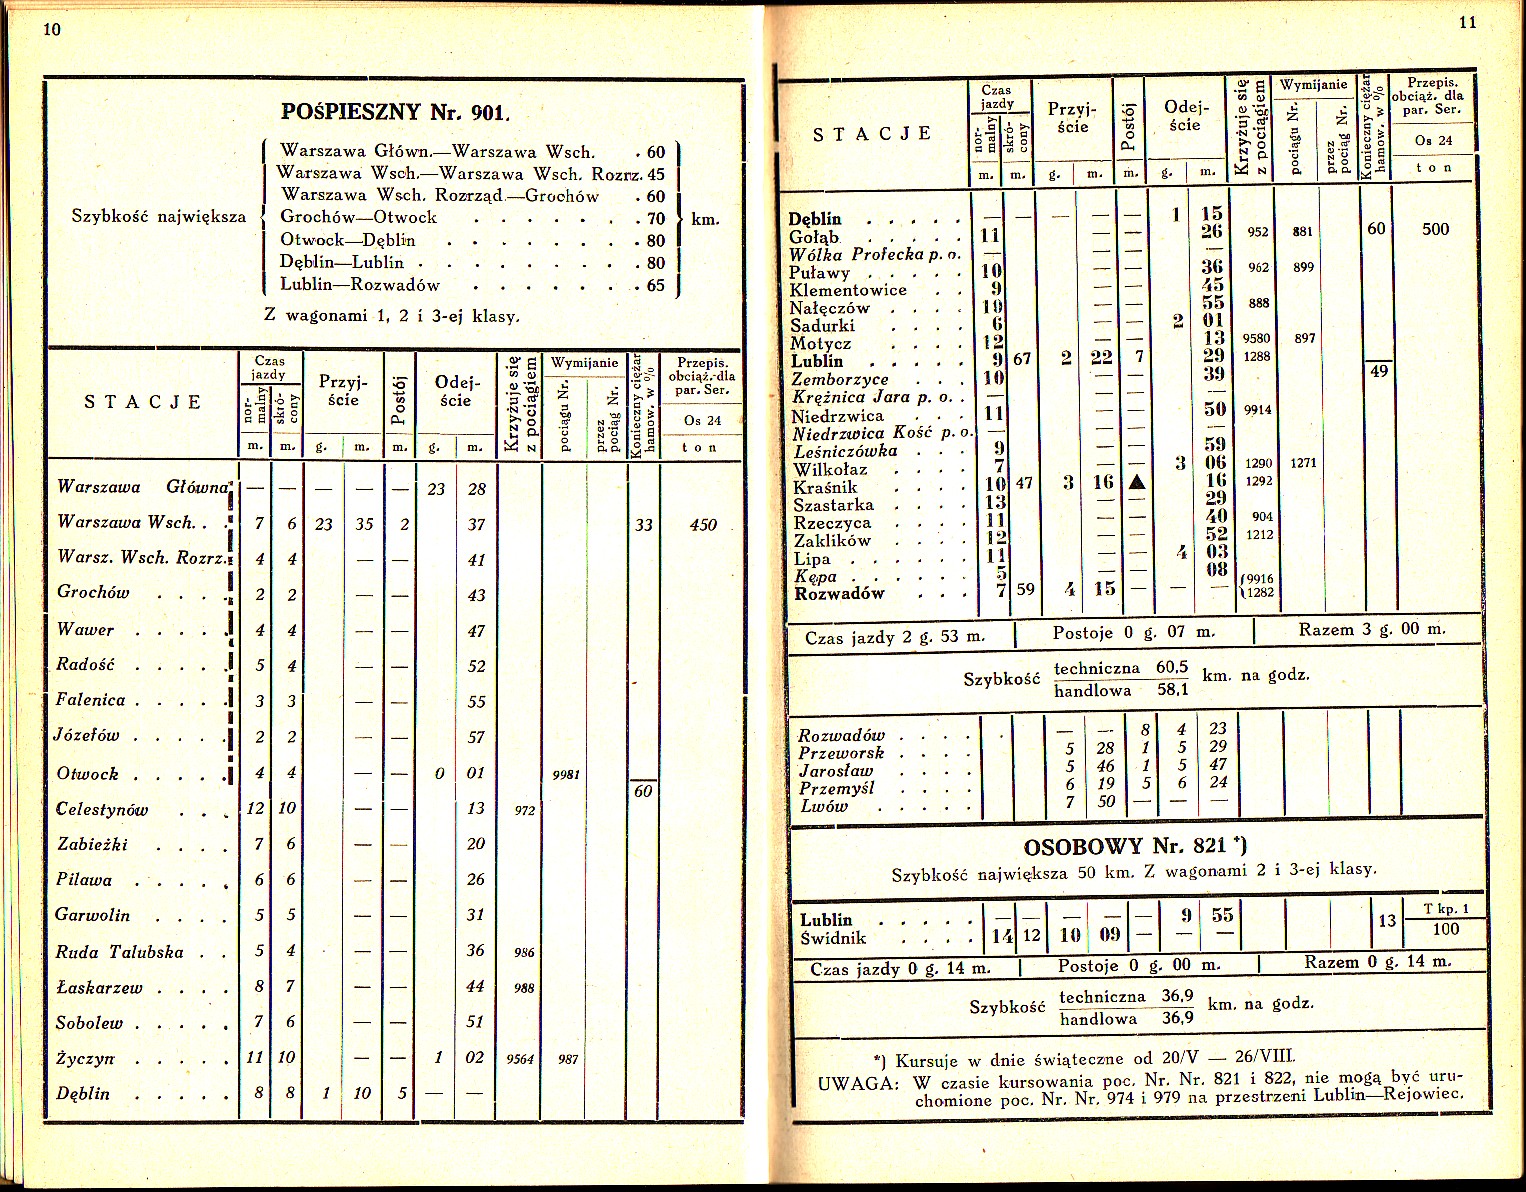 10
POŚPIESZNY Nr. 901.
Szybkość największa
Warszawa Główn.—Warszawa Wsch. . 60
Warszawa Wsch.—Warszawa Wsch. Rozrz. 45
Warszawa Wsch. Rozrząd.—Grochów . 60
Grochów—Otwock . . . . . . . 70
Otwock—Dęblin . . . . . . . . 80
Dęblin—Lublin . . . . . . . . . 80
Lublin—Rozwadów . . . . . . . 65
km.
Z wagonami 1, 2 i 3-ej klasy.
STACJE | Czas jazdy normalny m. | skrócony m. | Przyjście g. m. | Postój m. | Odejście g. m. | Krzyżuje się z pociągiem | Wymijanie pociągu Nr. | przez pociąg Nr. | Konieczny ciężar hamow. w % | Przepis. obciąż. dla par. Ser. Os 24 ton
Warszawa Główna — — — — — 23 28
Warszawa Wsch. . . 7 6 23 35 2 37 33 450
Warsz. Wsch. Rozrz. 4 4 — — 41
Grochów . . . . 2 2 — — 43
Wawer . . . . . 4 4 — — 47
Radość . . . . . 5 4 — — 52
Falenica . . . . . 3 3 — — 55
Józefów . . . . . 2 2 — — 57
Otwock . . . . . 4 4 — — 0 01 9981
60
Celestynów . . . 12 10 — — 13 972
Zabieżki . . . . 7 6 — — 20
Pilawa . . . . . 6 6 — — 26
Garwolin . . . . 5 5 — — 31
Ruda Talubska . . 5 4 — — 36 986
Łaskarzew . . . . 8 7 — — 44 988
Sobolew . . . . . 7 6 — — 51
Życzyn . . . . . 11 10 — — 1 02 9564 987
Dęblin . . . . . 8 8 1 10 5 — —
11
STACJE | Czas jazdy normalny m. | skrócony m. | Przyjście g. m. | Postój m. | Odejście g. m. | Krzyżuje się z pociągiem | Wymijanie pociągu Nr. | przez pociąg Nr. | Konieczny ciężar hamow. w % | Przepis. obciąż. dla par. Ser. Os 24 ton
Dęblin . . . . . — — — — — 1 15
Gołąb . . . . . 11 — — 26 952 881 60 500
Wólka Profecka p. o. — — — —
Puławy . . . . . 10 — — 36 962 899
Klementowice . . 9 — — 45
Nałęczów . . . . 10 — — 55 888
Sadurki . . . . 6 — — 2 01
Motycz . . . . 12 — — 13 9580 897
Lublin . . . . . 9 67 2 22 7 29 1288
Zemborzyce . . . 10 — — 39 49
Krężnica Jara p. o. . — — — —
Niedrzwica . . . 11 — — 50 9914
Niedrzwica Kość p. o. — — — —
Leśniczówka . . . 9 — — 59
Wilkołaz . . . . 7 — — 3 06 1290 1271
Kraśnik . . . . 10 47 3 16 ▲ 16 1292
Szastarka . . . . 13 — — 29
Rzeczyca . . . . 11 — — 40 904
Zaklików . . . . 12 — — 52 1212
Lipa . . . . . . 11 — — 4 03
Kępa . . . . . . 5 — — 08
Rozwadów . . . 7 59 4 15 — — — 9916 1282
Czas jazdy 2 g. 53 m. | Postoje 0 g. 07 m. | Razem 3 g. 00 m.
Szybkość techniczna 60,5 km. na godz.
handlowa 58,1
Rozwadów . . . . — — 8 4 23
Przeworsk . . . . 5 28 1 5 29
Jarosław . . . . 5 46 1 5 47
Przemyśl . . . . 6 19 5 6 24
Lwów . . . . . 7 50 — — —
OSOBOWY Nr. 821 *)
Szybkość największa 50 km. Z wagonami 2 i 3-ej klasy.
Lublin . . . . . — — — — — 9 55 13 T kp. 1
Świdnik . . . . 14 12 10 09 — — — 100
Czas jazdy 0 g. 14 m. | Postoje 0 g. 00 m. | Razem 0 g. 14 m.
Szybkość techniczna 36,9 km. na godz.
handlowa 36,9
*) Kursuje w dnie świąteczne od 20/V — 26/VIII.
UWAGA: W czasie kursowania poc. Nr. Nr. 821 i 822, nie mogą być uru-
chomione poc. Nr. Nr. 974 i 979 na przestrzeni Lublin—Rejowiec.